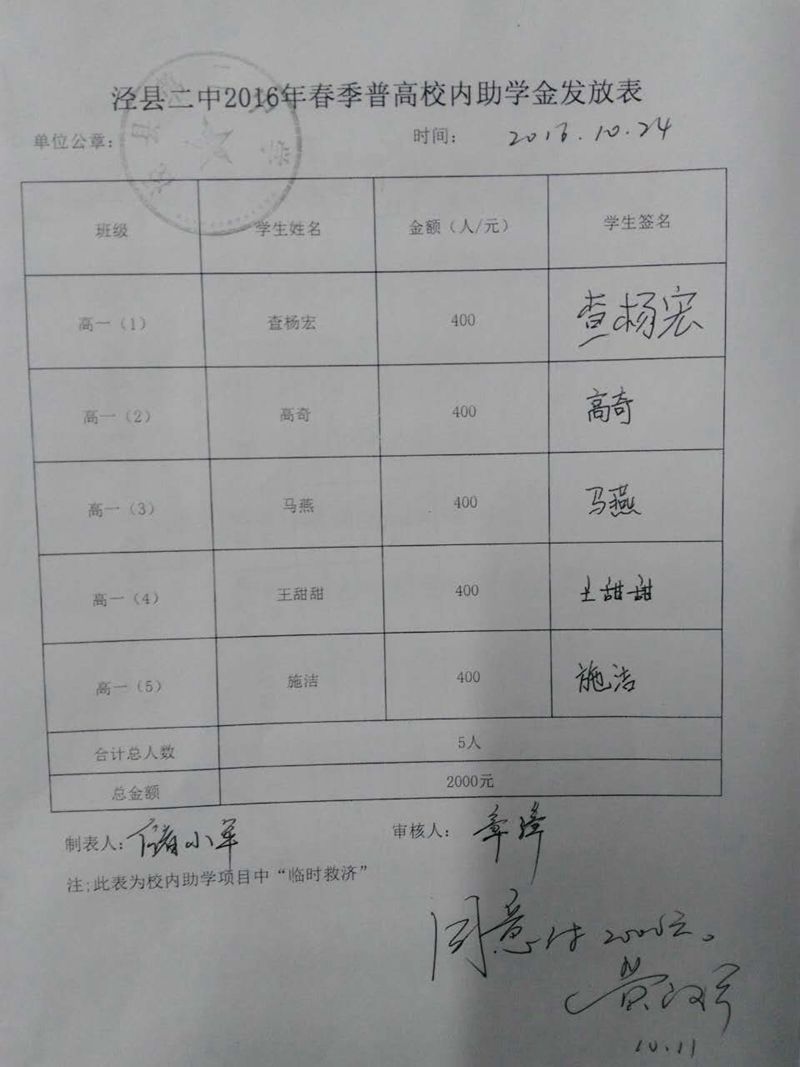 泾县二中2016年春季普高校内助学金发放表
单位公章： 时间： 2016.10.24
班级 学生姓名 金额（人/元） 学生签名
高一（1） 查杨宏 400 查杨宏
高一（2） 高奇 400 高奇
高一（3） 马燕 400 马燕
高一（4） 王甜甜 400 王甜甜
高一（5） 施洁 400 施洁
合计总人数 5人
总金额 2000元
制表人：储小军 审核人：章锋
注;此表为校内助学项目中“临时救济”
同意付2000元。
10.11